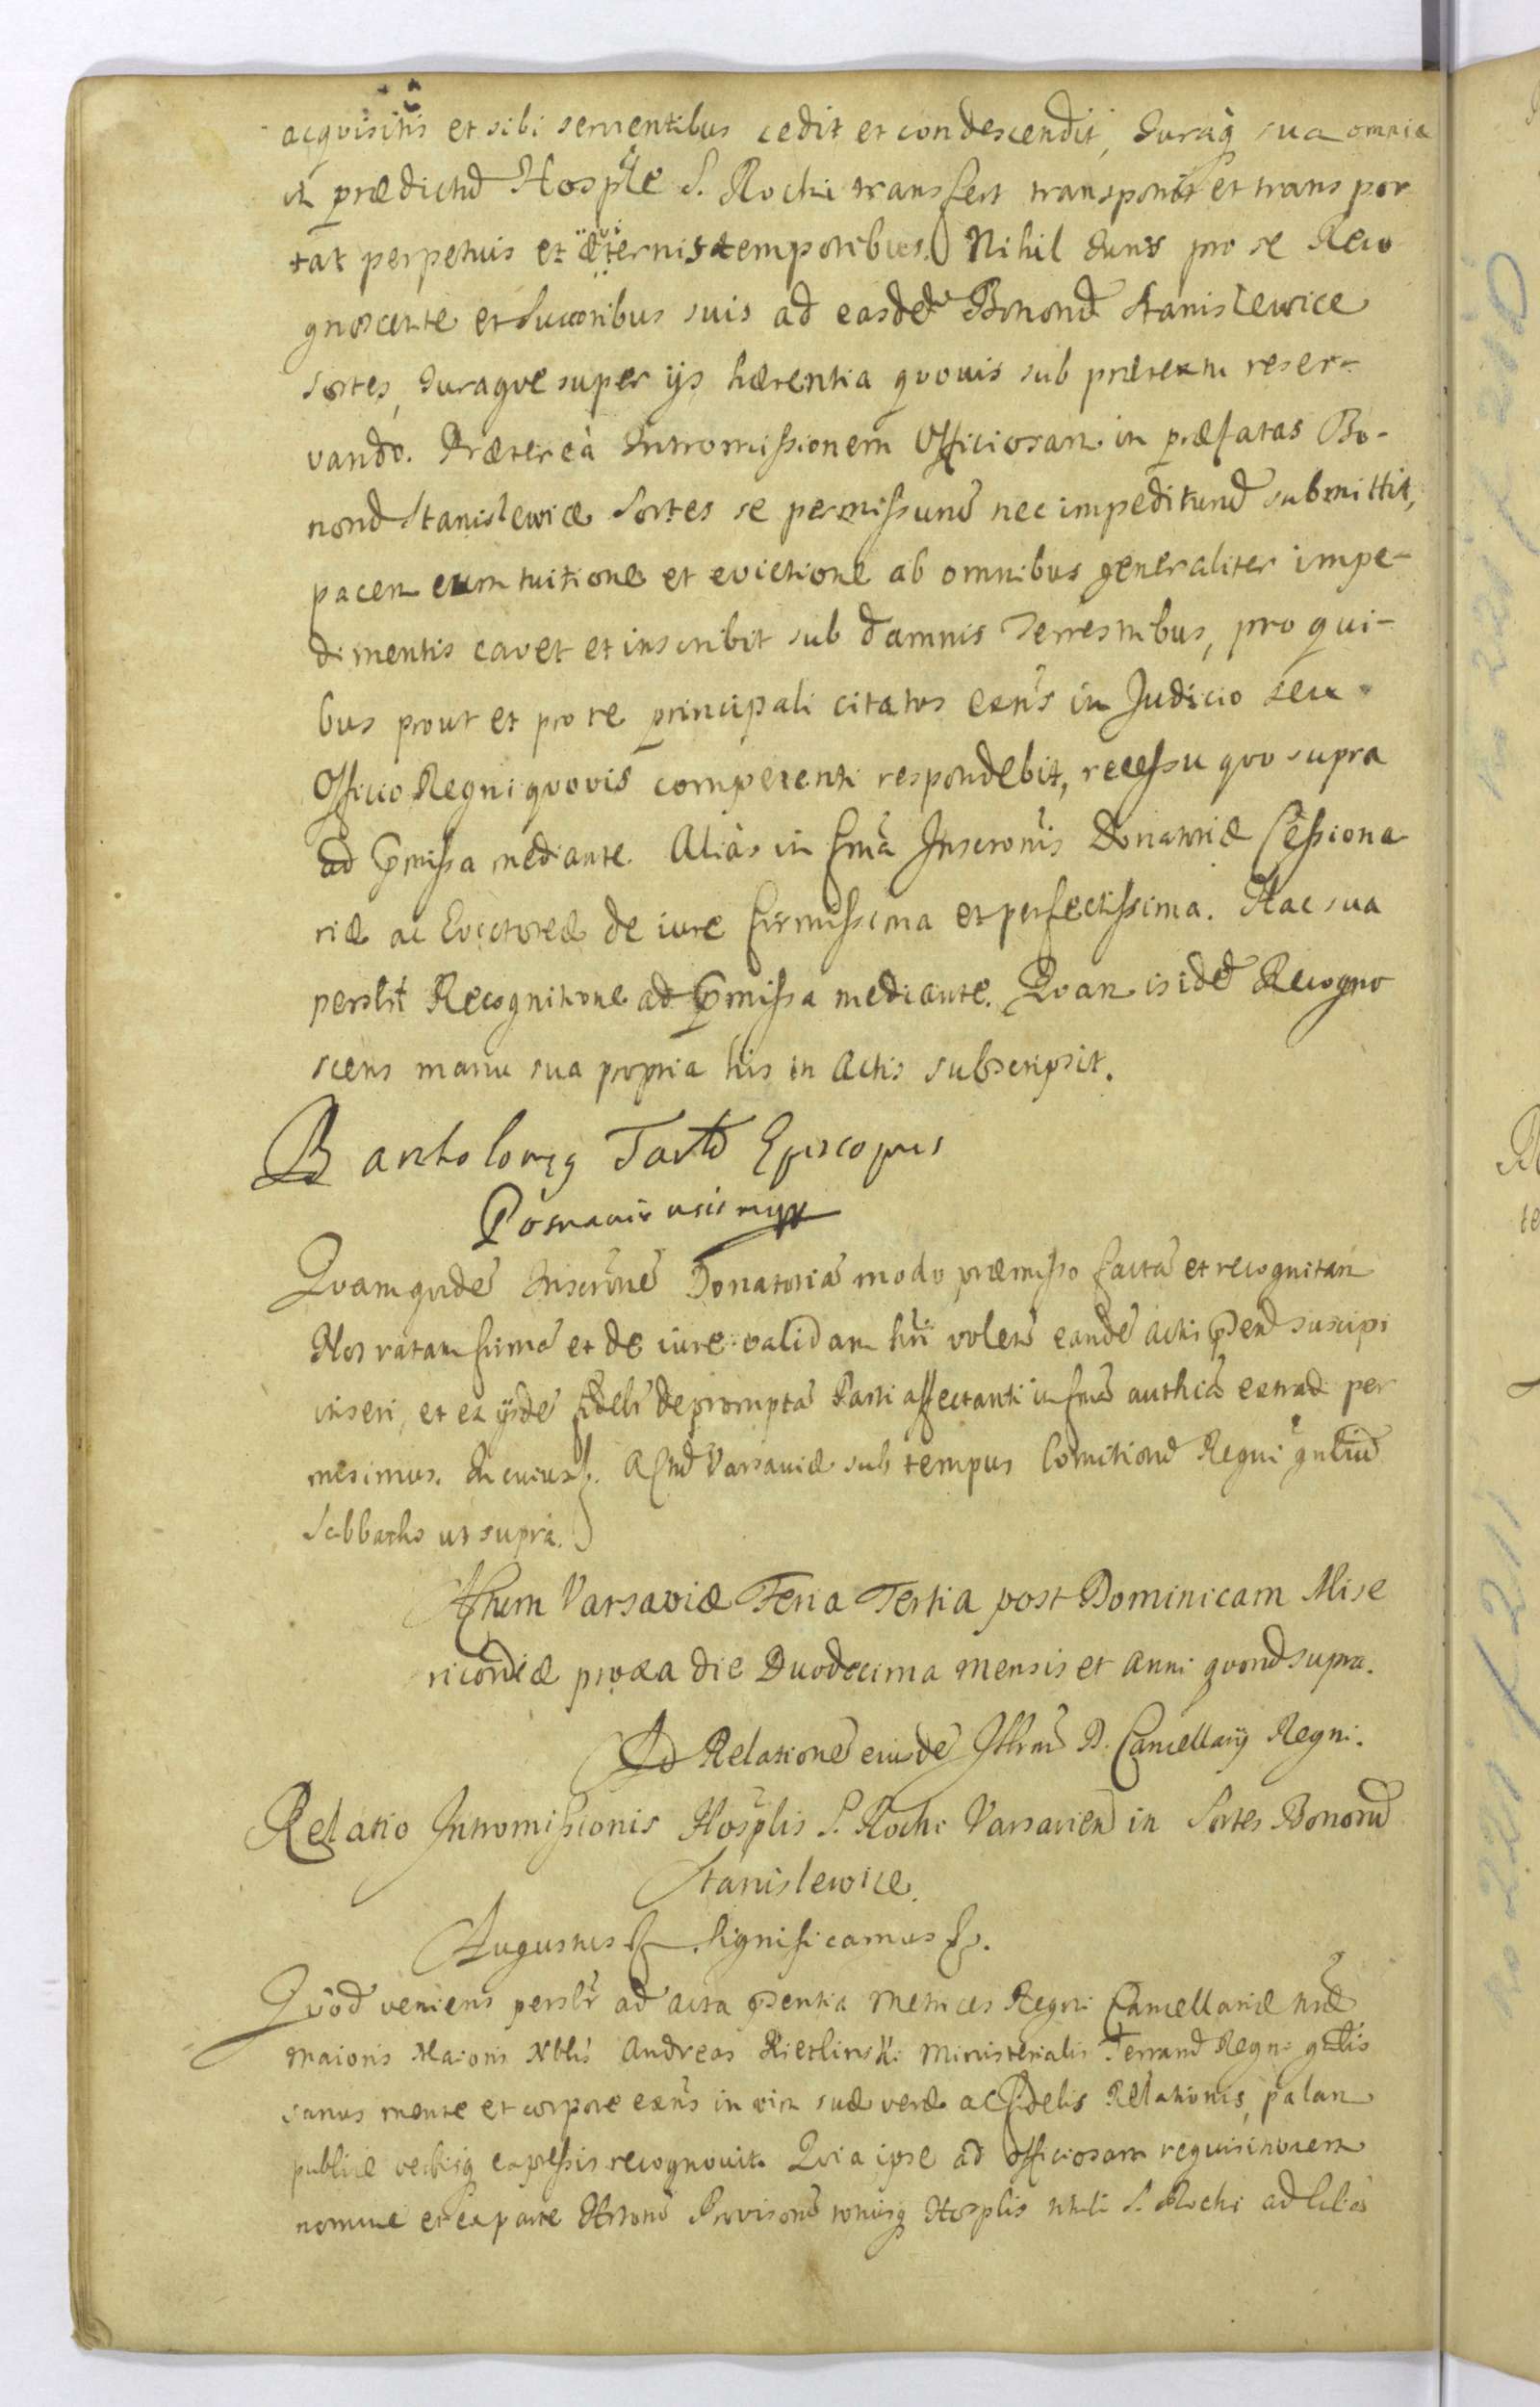 acqvisitis et sibi servientibus cedit et condescendit, Juraq sua omnia
in prædictu Hosple S. Rochi transfert transponit et transpor
tat perpetuis et æternis temporibus. Nihil Juris pro se Reco
gnoscente et Succoribus suis ad easde Bonoru Stanislewice
Sortes, Juraque super ijs hærentia qvovis sub prætextu reser-
vando. Præterea Intromissionem Officiosam in præfatas Bo-
noru Stanislewice Sortes se permissuru nec impedituru submittit,
pacem cum tuitione et evictione ab omnibus generaliter impe-
dimentis cavet et inscribit sub damnis Terrestribus, pro qui-
bus prout et pro re principali citatus exns in Judicio seu
Officio Regni qvovis competenti respondebit, recessu quo supra
ad præmissa mediante. Alias in fma Inscronis Donatoriæ Cessiona
riæ ac Evictoreæ de iure firmissima et perfectissima. Hac sua
perslri Recognitione ad præmissa mediante. Qvam is ide Recogno
scens manu sua propria his in Actis subscripsit.
Bartholomeg Tarlo Episcopus
Posnaniensis mpp
Qvam qvide Inscrone Donatoria modo præmisso facta et recognitam
Nos ratam firma et de iure validam hri volen eande actis pnt suscipi
inseri, et ex ijsde fideli depromptã Parti affectanti in fma authca extradi per
mesimus. In cuius f. Actu Varsaviæ sub tempus Comitioru Regni gnliu
Sabbatho ut supra.
Actum Varsaviæ Feria Tertia post Dominicam Mise
ricordiæ proxa die Duodecima mensis et Anni qvoru supra.
Ad Relatione eiusde Illrmi D. Cancellarij Regni.
Relatio Intromissionis Hosplis S. Rochi Varsavien in Sortes Bonoru
Stanislewice.
Augustus f. Significamus f.
Qvod veniens perslr ad acta præsentia Metrices Regni Cancellariæ nræ
maioris Maioris Nblis Andreas Kietlinski Ministerialis Terraru Regni gnlis
sanus mente et corpore exns in vim suæ veræ ac fidelis Relationis, palam
publice verbisq expressis recognovit. Qvia ipse ad officiosam reqvisitionem
nomine et ex parte Provisoru totiusq Hosplis S. Rochi ad